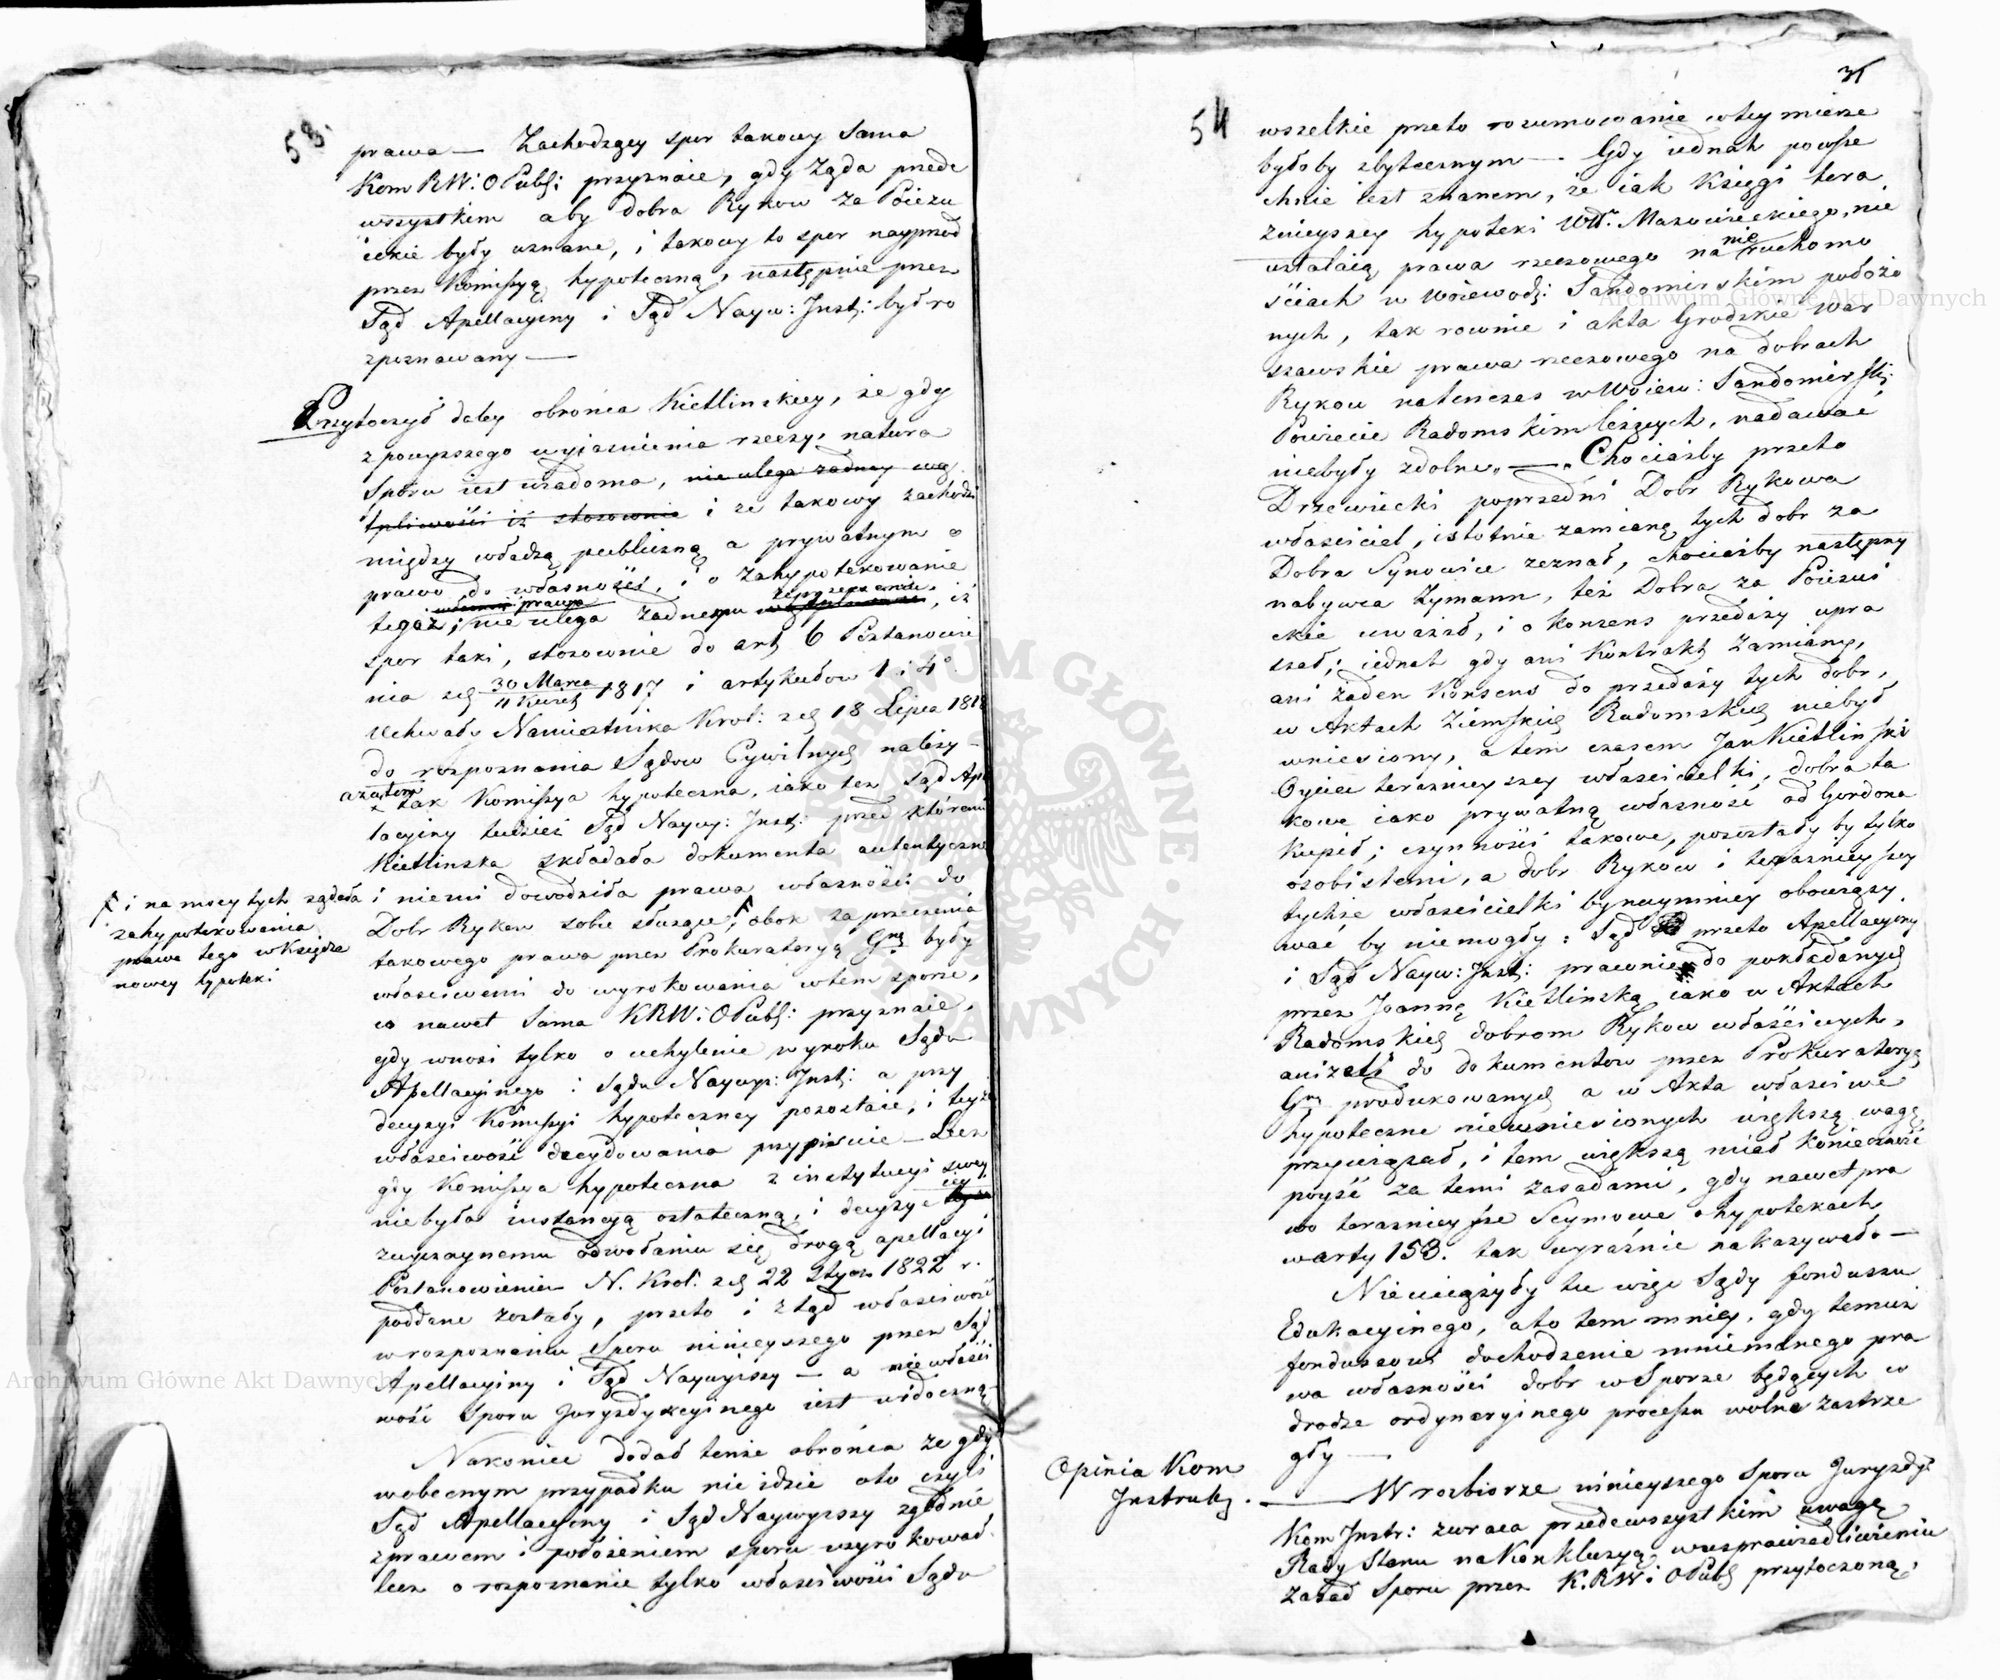 53.
prawa — Zachodzący spor takowy Sama
Kom RW: O Publ: przyznaie, gdy żąda przede
wszystkiem aby dobra Rykow za Poiezu
ickie były uznane, i takowy to spor nayprzód
przez Komissyą hypoteczną, następnie przez
Sąd Apellacyiny i Sąd Nayw: Inst: był ro
zpoznawany —
Przytoczył daley obrońca Kietlinskiey, że gdy
z powyższego wyiaśnienia rzeczy, natura
Sporu iest wiadoma, nie ulega żadney wą
tpliwości iż stosownie i że takowy zachodzi
między władzą publiczną a prywatnym o
prawo do własności, i o zahypotekowanie
tegoż; nie ulega żadnemu zaprzeczeniu, iż
spor taki, stosownie do art 6 Postanowie
nia z d 30 Marca / 11 Kwiet 1817 i artykułow 1 i 4°
Uchwały Namiestnika Krol: z d 18 Lipca 1818
do rozpoznania Sądow Cywilnych należy —
a zatem tak Komissya hypoteczna, iako też Sąd Ape
lacyiny tudzież Sąd Nayw: Inst: przed któremi
Kietlinska składała dokumenta autentyczne
i niemi dowodziła prawa własności do
Dobr Rykow sobie służące, obok zaprzeczenia
takowego prawa przez Prokuratoryą Gną były
właściwemi do wyrokowania w tem sporze,
co nawet Sama KRW: O Publ: przyznaie,
gdy wnosi tylko o uchylenie wyroku Sądu
Apellacyinego i Sądu Naywyż: Inst: a przy
decyzyi Komissyi hypoteczney pozostaie, i teyże
właściwość decydowania przypisuie — Lecz
gdy Komissya hypoteczna z instytucyi swey
nie była instancyą ostateczną, i decyzye iey
zwyczaynemu odwołaniu się drogą apellacyi
Postanowieniem N. Krol: z d 22 Stycz 1822 r.
poddane zostały, przeto i ztąd właściwość
w rozpoznaniu Sporu ninieyszego przez Sąd
Apellacyiny i Sąd Naywyższy — a niewłaści
wość Sporu Juryzdykcyinego iest widoczną —
Nakoniec dodał tenże obrońca że gdy
w obecnym przypadku nie idzie o to czyli
Sąd Apellacyiny i Sąd Naywyższy zgodnie
z prawem i położeniem sporu wyrokował
lecz o rozpoznanie tylko właściwości Sądu
i na mocy tych żądała
zahypotekowania
prawa tego w Księdze
nowey hypoteki
54
wszelkie przeto rozumowanie w tey mierze
byłoby zbytecznym — Gdy iednak powsze
chnie iest znanem, że iak Księgi tera
źnieyszey hypoteki Wd. Mazowieckiego, nie
ustalaią prawa rzeczowego na nieruchomo
ściach w Woiewodz: Sandomirskim położo
nych, tak rownie i akta Grodzkie War
szawskie prawa rzeczowego na dobrach
Rykow natenczas w Woiew: Sandomirsk:
Powiecie Radomskim leżących, nadawać
niebyły zdolne. — Chociażby przeto
Drzewiecki poprzedni Dobr Rykowa
właściciel, istotnie zamianę tych dobr za
Dobra Synowice zeznał, chociażby następny
nabywca Zymann, też Dobra za Poiezui
ckie uważał, i o konsens przedaży upra
szał; iednak gdy ani Kontrakt zamiany,
ani żaden Konsens do przedaży tych dobr,
w Aktach Ziemskich Radomskich niebył
wniesiony, a tem czasem Jan Kietlinski
Oyciec teraznieyszey właścicielki, dobra ta
kowe iako prywatną własność od Gordona
kupił; czynności takowe, pozostały by tylko
osobistemi, a dobr Rykow i teraznieyszey
tychże właścicielki bynaymniey obowiązy
wać by niemogły: Sąd przeto Apellacyiny
i Sąd Nayw: Inst: prawnie do pokładanych
przez Joannę Kietlinską iako w Aktach
Radomskich dobrom Rykow właściwych,
aniżeli do dokumentow przez Prokuratoryą
Gną produkowanych a w Akta właściwe
hypoteczne niewniesionych większą wagę
przywiązał, i tem większą miał konieczność
poyść za temi zasadami, gdy nawet pra
wo teraznieysze Seymowe o hypotekach
w arty 153. tak wyraźnie nakazywało —
Nieuciążyły tu więc Sądy funduszu
Edukacyinego, a to tem mniey, gdy temuż
funduszowi dochodzenie mniemanego pra
wa własności dobr w Sporze będących w
drodze ordynaryinego processu wolne zastrze
gły —
Opinia Kom
Instrukc.
— W rozbiorze ninieyszego Sporu Juryzdyk:
Kom Instr: zwraca przedewszystkim uwagę
Rady Stanu na Konkluzyą w usprawiedliwieniu
zasad Sporu przez K.RW: O Publ przytoczoną,
Archiwum Główne Akt Dawnych
Archiwum Główne Akt Dawnych
ARCHIWUM GŁÓWNE AKT DAWNYCH